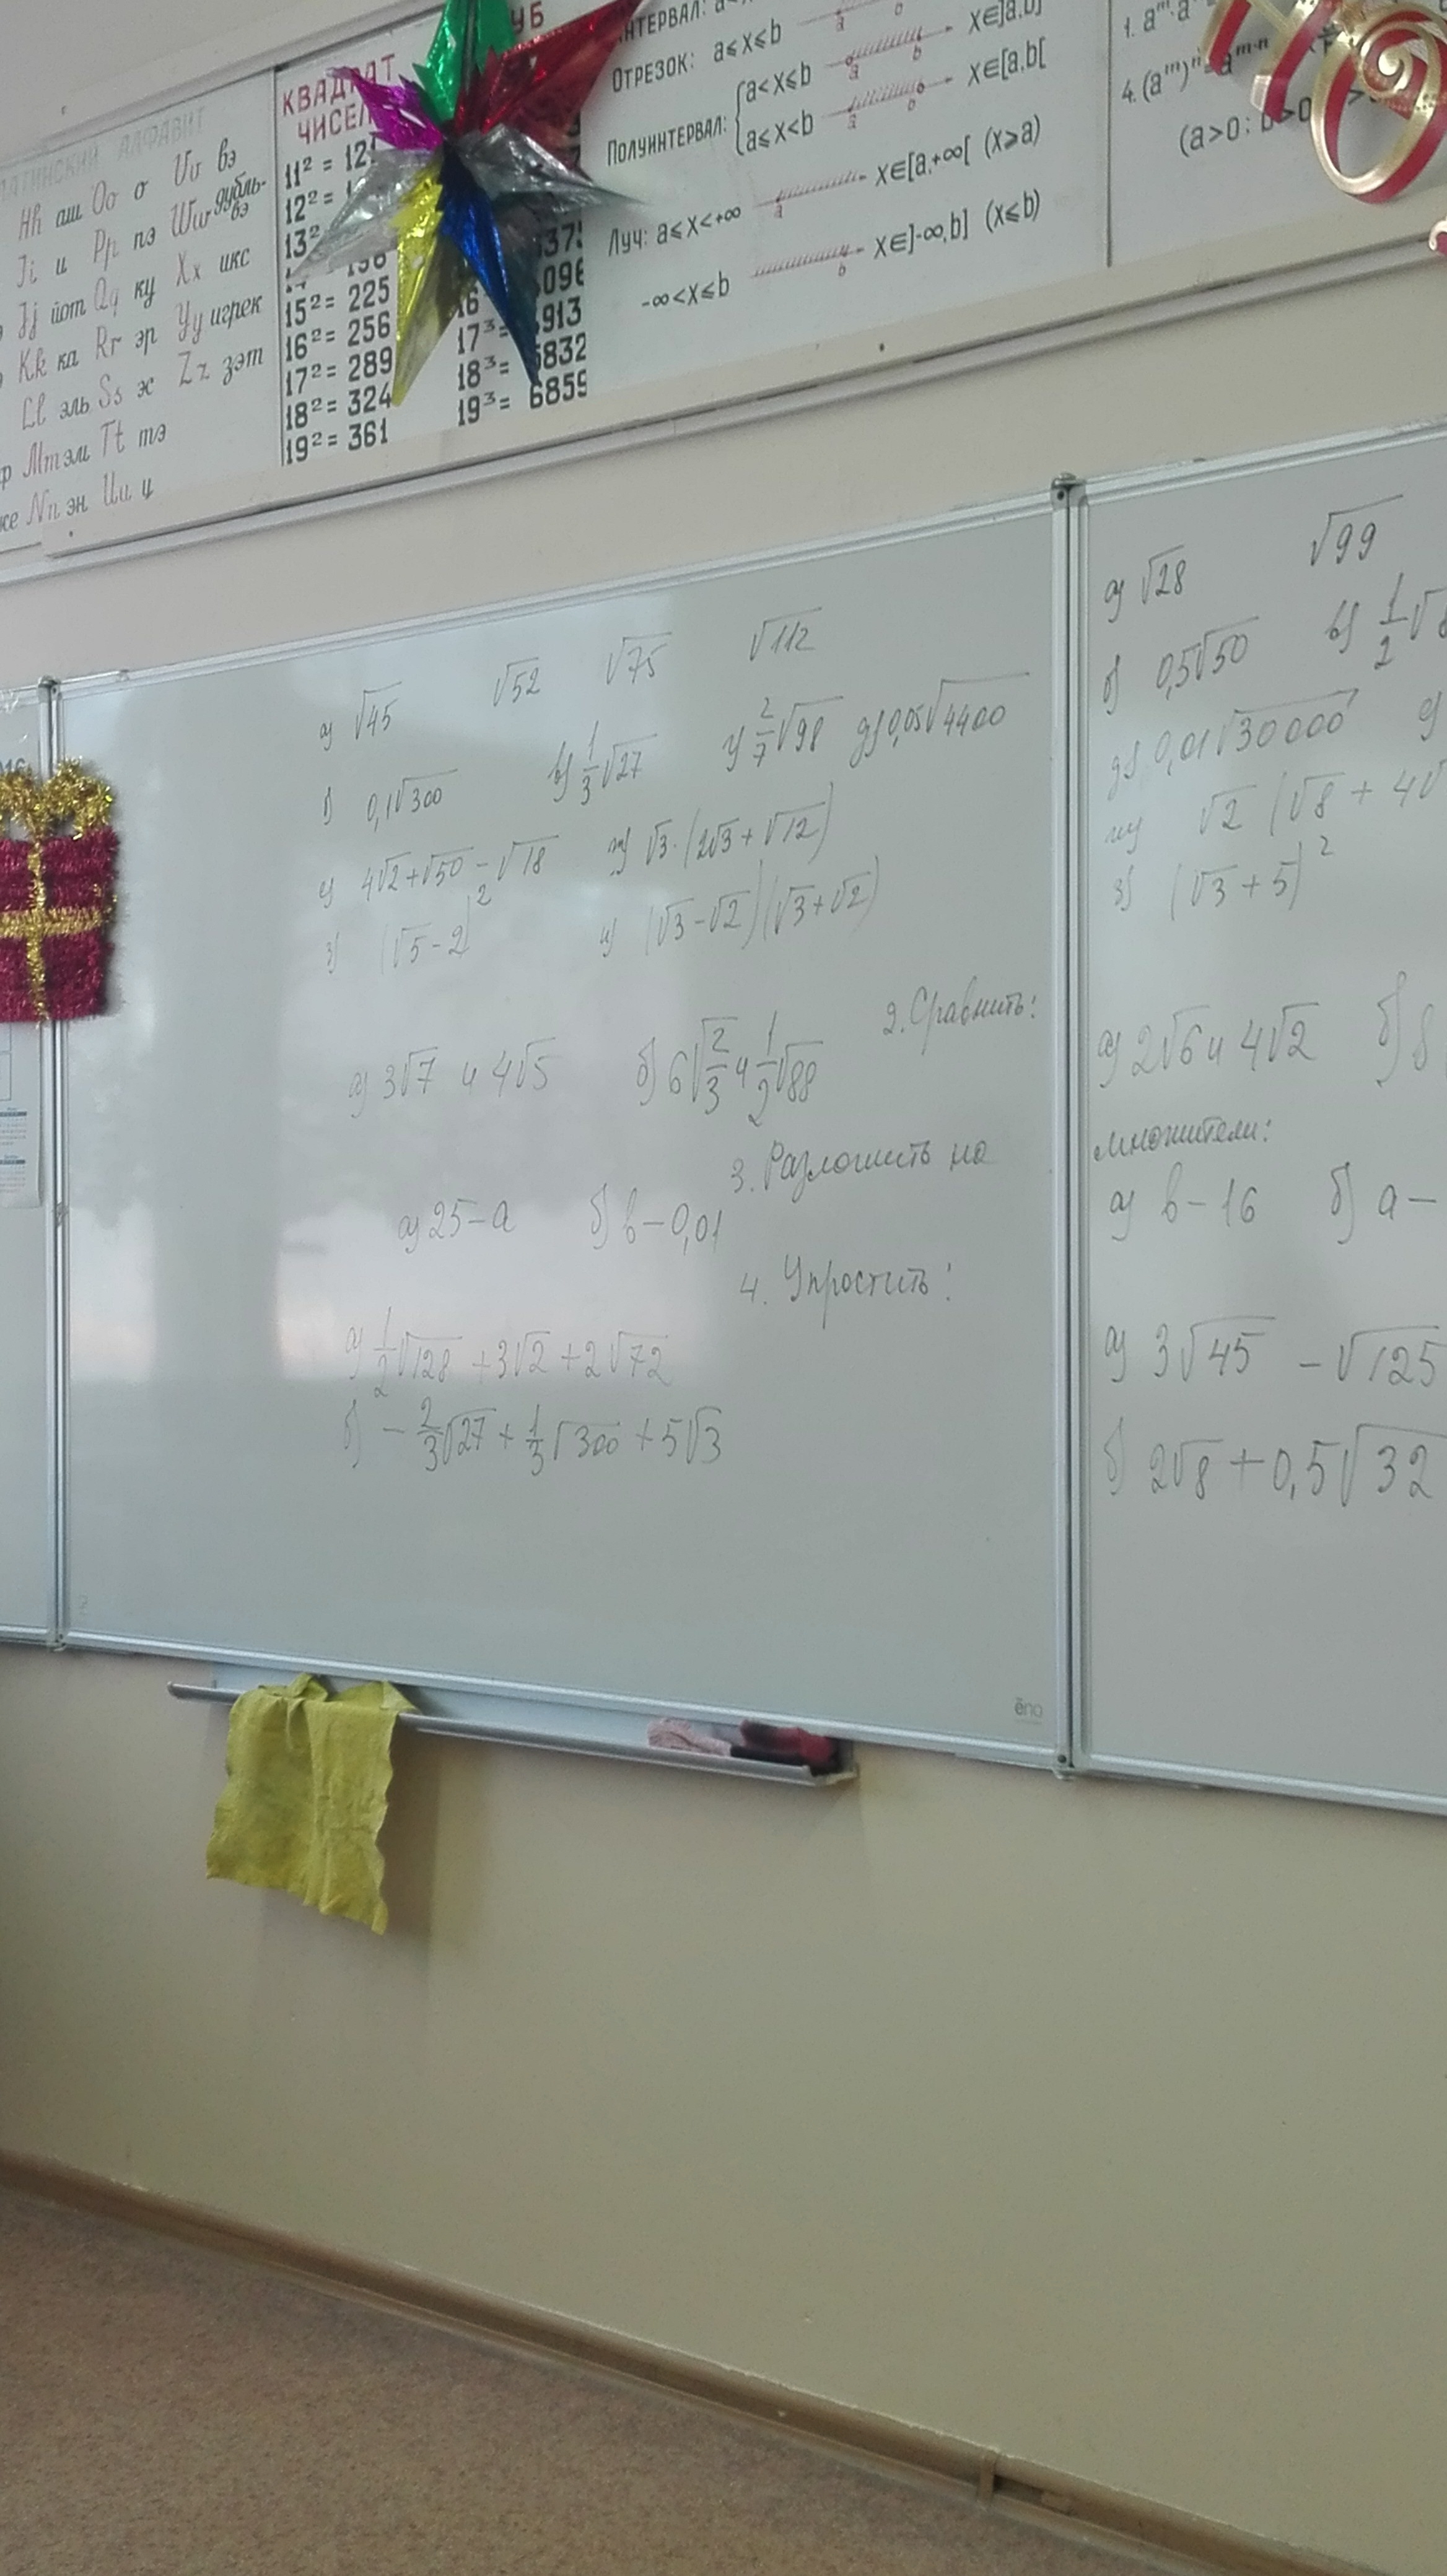 ЛАТИНСКИЙ АЛФАВИТ
Hh аш Oo о Vv вэ
Ii и Pp пэ Ww дубль-вэ
Jj йот Qq ку Xx икс
Kk ка Rr эр Yy игрек
Ll эль Ss эс Zz зэт
Mm эм Tt тэ
Nn эн Uu у
КВАДРАТ
ЧИСЕЛ
11² = 121
12² =
13²
196
15² = 225
16² = 256
17² = 289
18² = 324
19² = 361
УБ
16
17³ = 4913
18³ = 5832
19³ = 6859
ОТРЕЗОК: a⩽x⩽b
ПОЛУИНТЕРВАЛ: {a<x⩽b x∈]a,b]
a⩽x<b x∈[a,b[
ЛУЧ: a⩽x<+∞ x∈[a,+∞[ (x⩾a)
-∞<x⩽b x∈]-∞,b] (x⩽b)
1. aᵐ·a
4. (aᵐ)ⁿ=aᵐ·ⁿ
(a>0;
а) √45 √52 √75 √112
б) 0,1√300 в) 1/3√27 г) 2/7√98 д) 0,05√4400
е) 4√2+√50-√18 ж) √3·(2√3+√12)
з) (√5-2)² и) (√3-√2)(√3+√2)
2. Сравнить:
а) 3√7 и 4√5 б) 6√2/3 и 1/2√88
3. Разложить на
а) 25-a б) b-0,01
4. Упростить:
а) 1/2√128 +3√2 +2√72
б) -2/3√27 + 1/3√300 +5√3
ēno
а) √28 √99
б) 0,5√50 в) 1/2√
д) 0,01√30000
ж) √2 (√8 + 4√
з) (√3 + 5)²
а) 2√6 и 4√2 б) 8
множители:
а) b-16 б) a-
а) 3√45 -√125
б) 2√8 +0,5√32